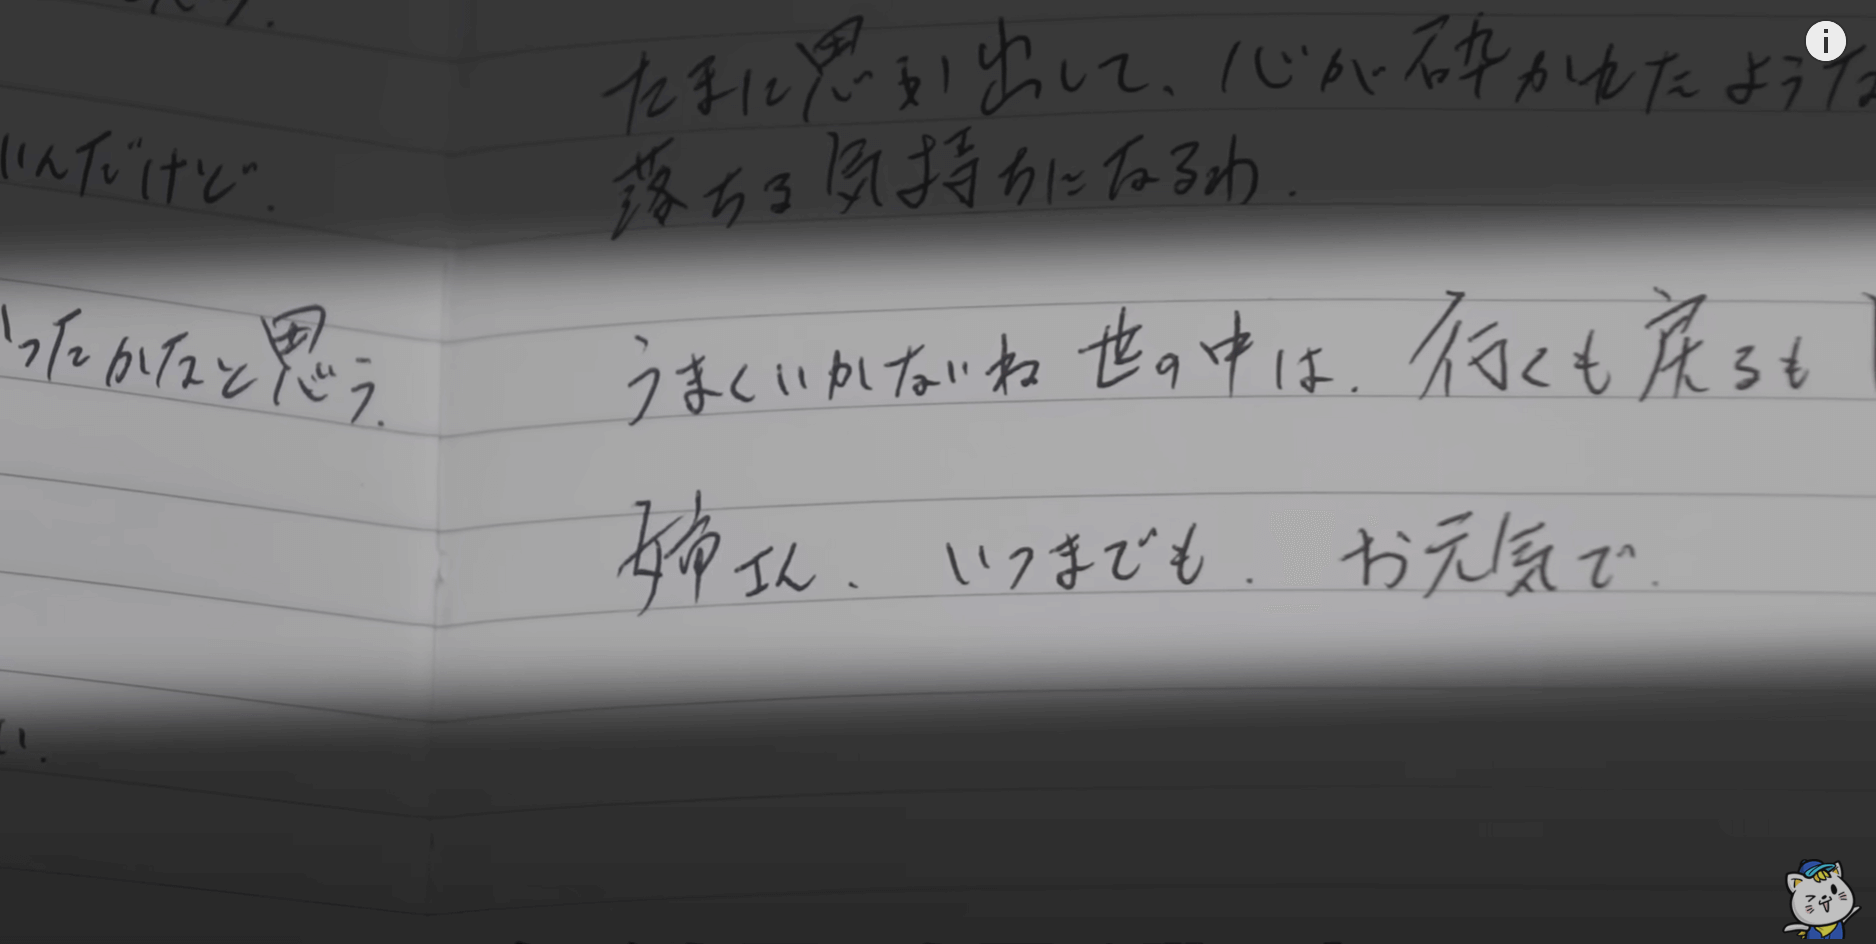 いんだけど.
ったかなと思う.
い.
たまに思い出して、心が砕かれたような
落ちる気持ちになるわ.
うまくいかないね 世の中は. 行くも戻るも
姉さん. いつまでも. お元気で.